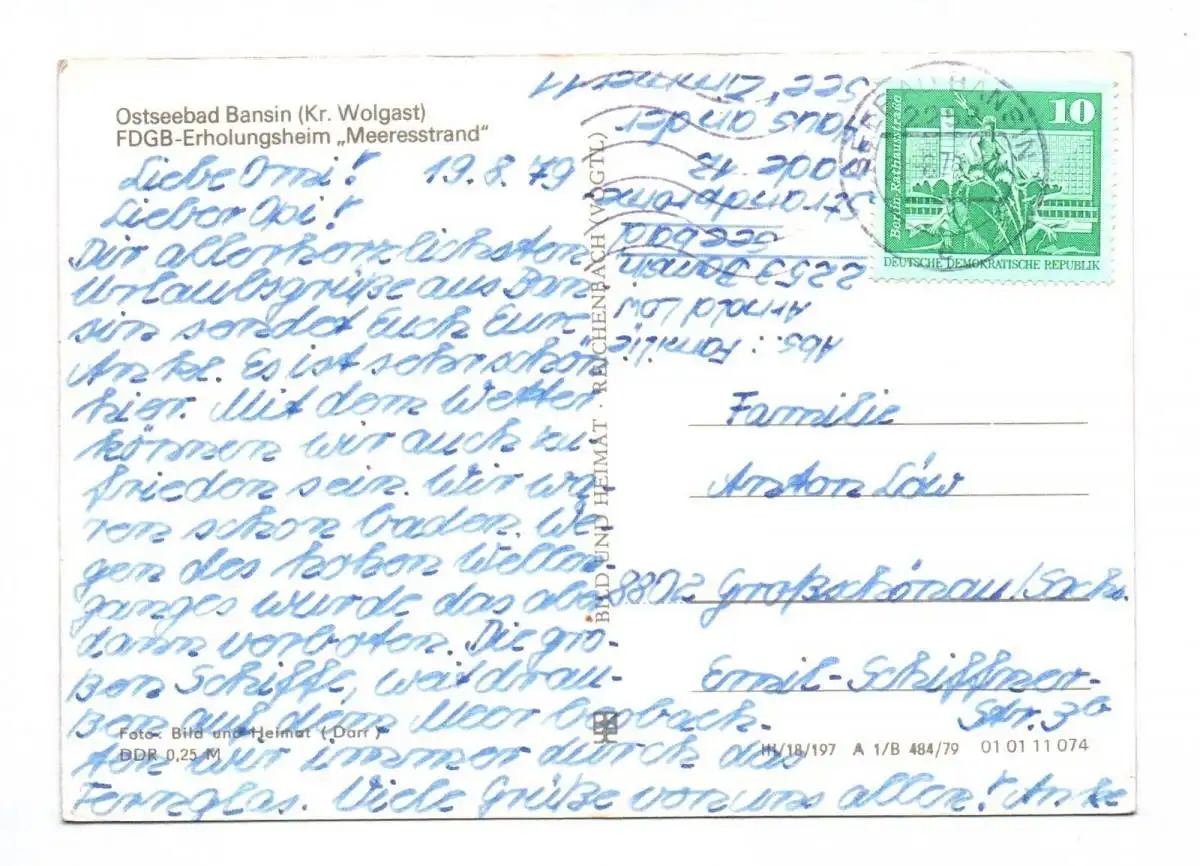 Ostseebad Bansin (Kr. Wolgast)
FDGB-Erholungsheim „Meeresstrand“
Liebe Omi! 19.8.79
Lieber Opi!
Die allerherzlichsten
Urlaubsgrüße aus Ban
sin sendet Euch Eure
Anke. Es ist sehr schön
hier. Mit dem Wetter
können wir auch zu
frieden sein. Wir wa-
ren schon baden. We
gen des hohen Wellen
ganges wurde das aber
dann verboten. Die gro-
ßen Schiffe, weit drau-
ßen auf dem Meer beobach-
ten wir immer durch das
Fernglas. Viele Grüße von uns allen! Anke
Foto: Bild und Heimat (Darr)
DDR 0,25 M
BILD UND HEIMAT · REICHENBACH (VOGTL)
Abs.: Familie
Arnold Löw
2253 Bansin
Seebad
Strandprome
nade 12
Haus an der
See, Zimmer 11
10
Berlin, Rathausstraße
DEUTSCHE DEMOKRATISCHE REPUBLIK
Familie
Anton Löw
8802 Großschönau/Sachs.
Emil-Schiffner-
Str. 36
III/18/197 A 1/B 484/79 01 01 11 074